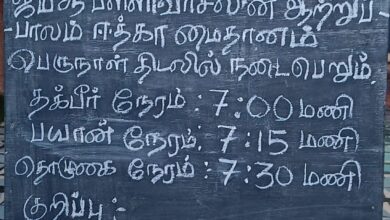 ஜும்ஆ பள்ளிவாசலின் ஆற்றுப்
-பாலம் ஈத்கா மைதானம்
பெருநாள் திடலில் நடைபெறும்
தக்பீர் நேரம் : 7:00 மணி
பயான் நேரம் : 7:15 மணி
தொழுகை நேரம் : 7:30 மணி
குறிப்பு :-